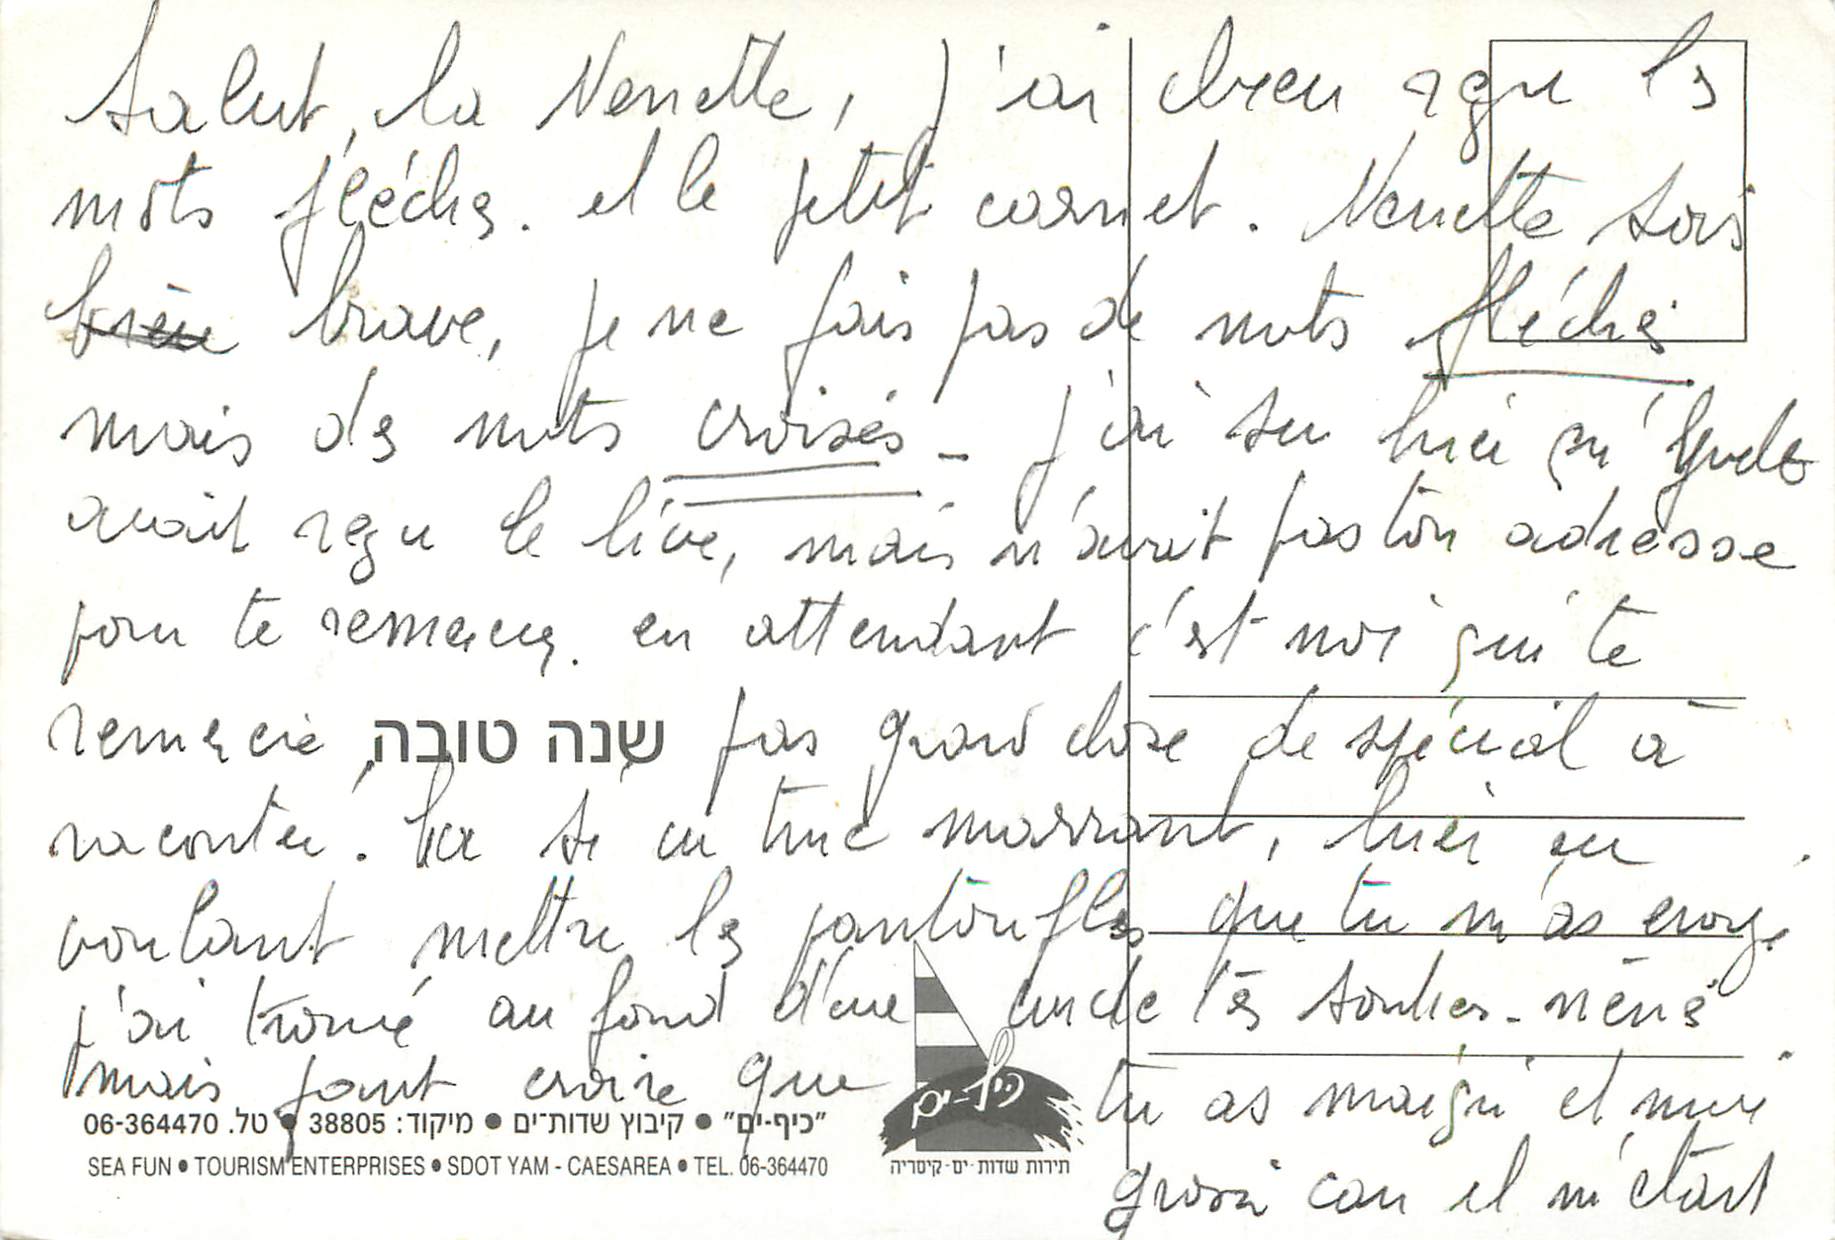 Salut, la Nenette, j'ai bien reçu les
mots fléchés. et le petit carnet. Nenette sois
brave, je ne fais pas de mots fléchés
mais des mots croisés - j'ai su hier qu'
avait reçu le livre, mais n'avait pas ton adresse
pour te remercier. en attendant c'est moi qui te
remercie שנה טובה, pas grand chose de spécial à
raconter. si un truc marrant, hier en
voulant mettre les pantoufles que tu m'as envoyé
j'ai trouvé au fond d'une tes
mais faut croire que tu as maigri et moi
grossi car il m'étant
"כיף-ים" • קיבוץ שדות־ים • מיקוד: 38805 • טל. 06-364470
SEA FUN • TOURISM ENTERPRISES • SDOT YAM - CAESAREA • TEL. 06-364470
כיף-ים
תירות שדות-ים-קיסריה